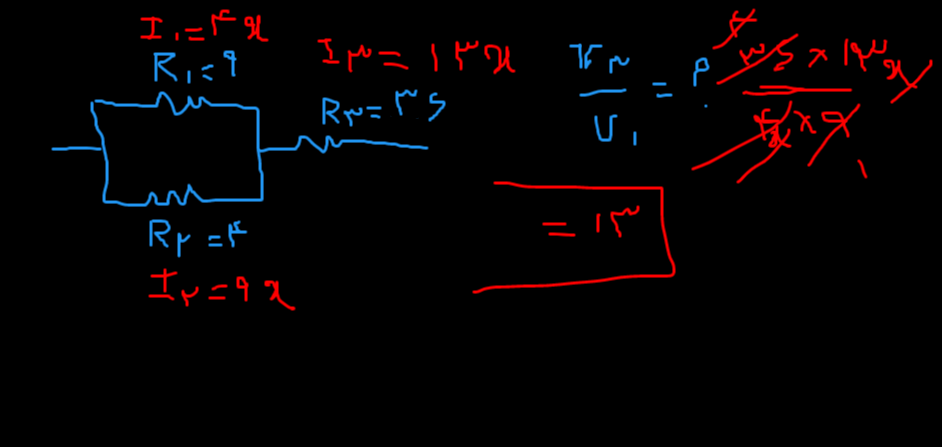 I₁ = ۴x
R₁ = ۹
I۳ = ۱۳x
R۳ = ۳۶
R۲ = ۴
I۲ = ۹x
V۳ / V₁ = ?
۴
۳۶ × ۱۳x
۴x × ۹
۱
= ۱۳